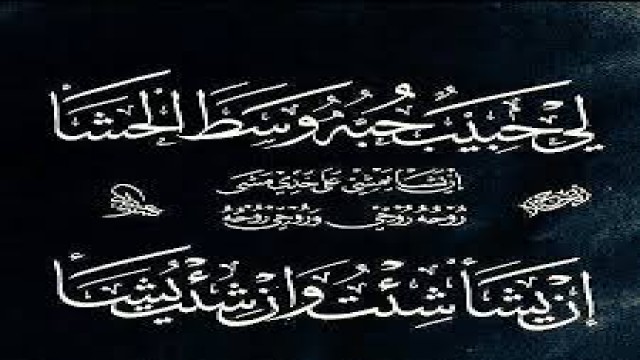 لِيْ حَبِيْبٌ حُبُّهُ وَسَطَ الْحَشَا
إِنْ يَشَا مَشَى عَلَى خَدِّي مَشَى
رُوْحُهُ رُوْحِي وَرُوْحِي رُوْحُهُ
إِنْ يَشَأْ شِئْتُ وَإِنْ شِئْتُ يَشَأْ